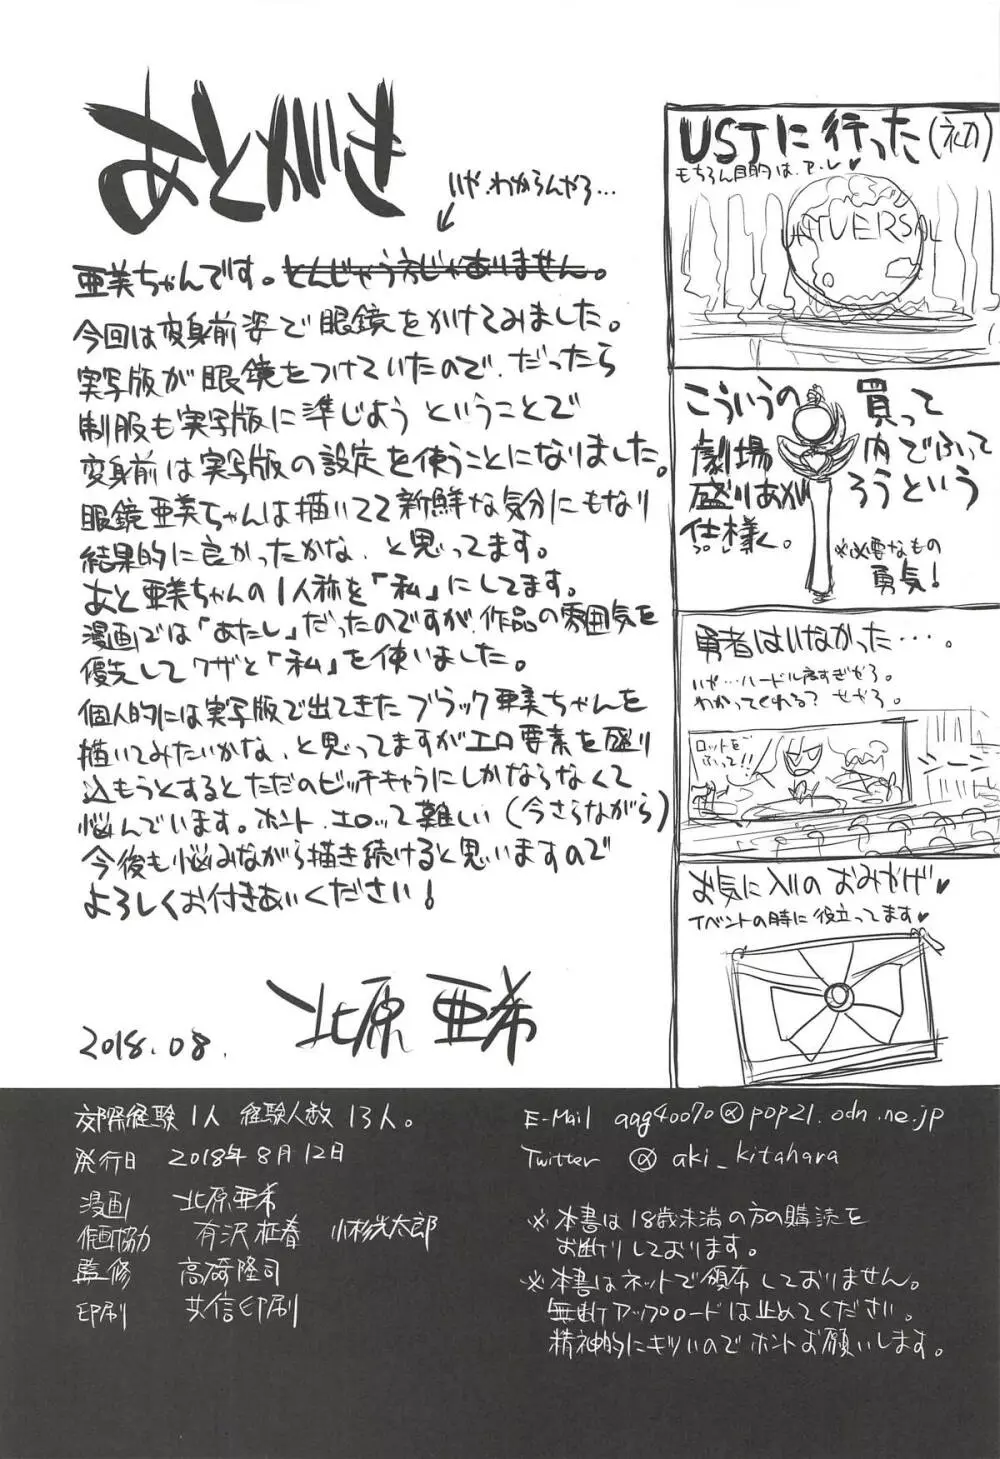 あとがき
いや、わからんやろ…
亜美ちゃんです。とんじゃうえじゃありません。
今回は変身前姿で眼鏡をかけてみました。
実写版が眼鏡をつけていたので、だったら
制服も実写版に準じようということで
変身前は実写版の設定を使うことになりました。
眼鏡亜美ちゃんは描いてて新鮮な気分にもなり
結果的に良かったかな、と思ってます。
あと亜美ちゃんの1人称を「私」にしてます。
漫画では「あたし」だったのですが、作品の雰囲気を
優先してワザと「私」を使いました。
個人的には実写版で出てきたブラック亜美ちゃんを
描いてみたいかな、と思ってますがエロ要素を盛り
込もうとするとただのビッチキャラにしかならなくて
悩んでいます。ホント、エロって難しい(今さらながら)
今後も悩みながら描き続けると思いますので
よろしくお付きあいください!
北原亜希
2018.08.
USJに行った(初)
もちろん目的は、ア・レ♥
UNIVERSAL
こういうの買って
劇場内でふって
盛りあがろうという
仕様。
※必要なもの
勇気!
勇者はいなかった・・・・。
いや…ハードル高すぎやろ。
わかってくれる?せやろ。
ロッドを
ふって!!
シーン
お気に入りのおみやげ♥
イベントの時に役立ってます♥
交際経験1人 経験人数13人。
発行日 2018年8月12日
漫画 北原亜希
作画協力 有沢柾春 小杉光太郎
監修 高碕隆司
印刷 共信印刷
E-Mail aag40070@pop21.odn.ne.jp
Twitter @aki_kitahara
※本書は18歳未満の方の購読を
お断りしております。
※本書はネットで頒布しておりません。
無断アップロードは止めてください。
精神的にキツいのでホントお願いします。